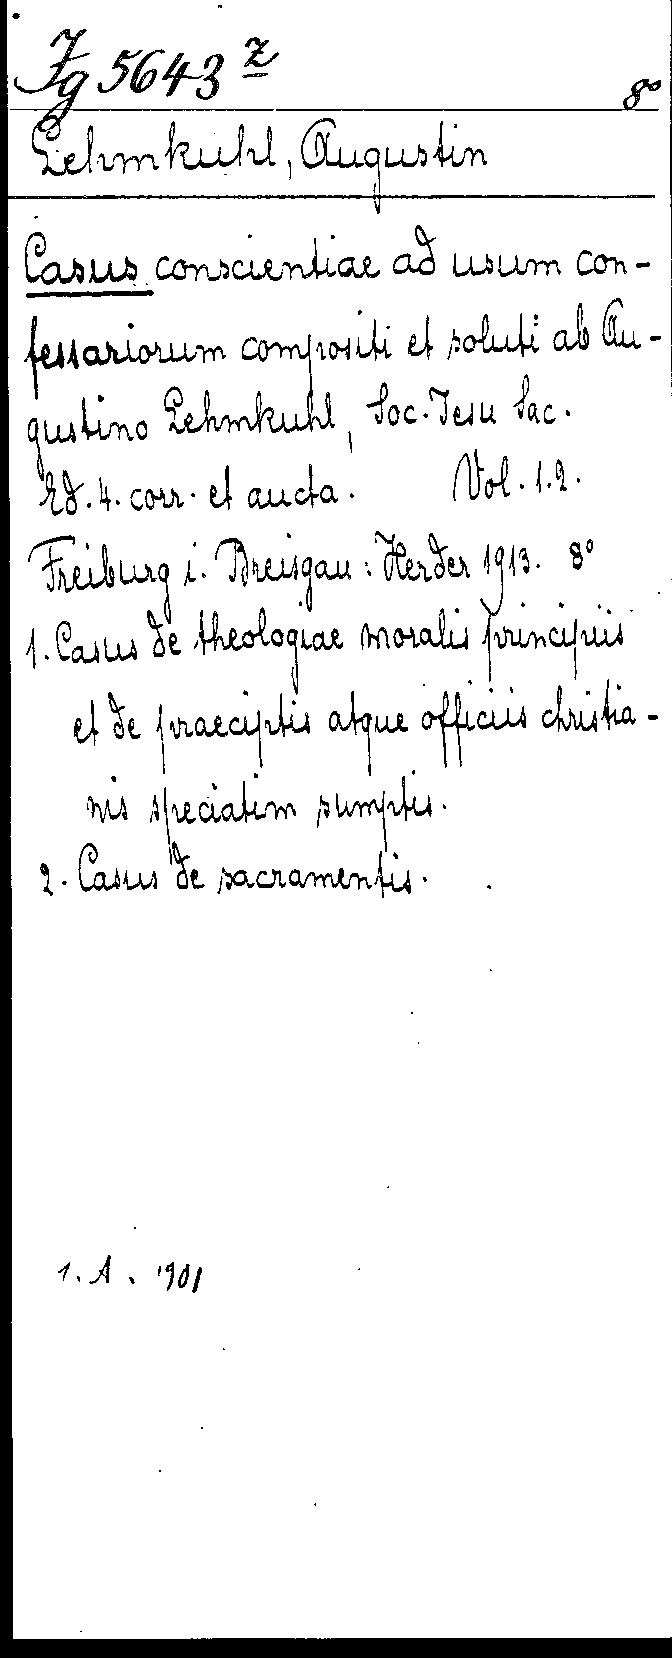 Fg 5643 z
8°
Lehmkuhl, Augustin
Casus conscientiae ad usum con-
fessariorum compositi et soluti ab Au-
gustino Lehmkuhl, Soc. Jesu Sac.
Ed. 4. corr. et aucta. Vol. 1.2.
Freiburg i. Breisgau: Herder 1913. 8°
1. Casus de theologiae moralis principiis
et de praeciptis atque officiis christia-
nis speciatim sumptis.
2. Casus de sacramentis.
1. A. 1901